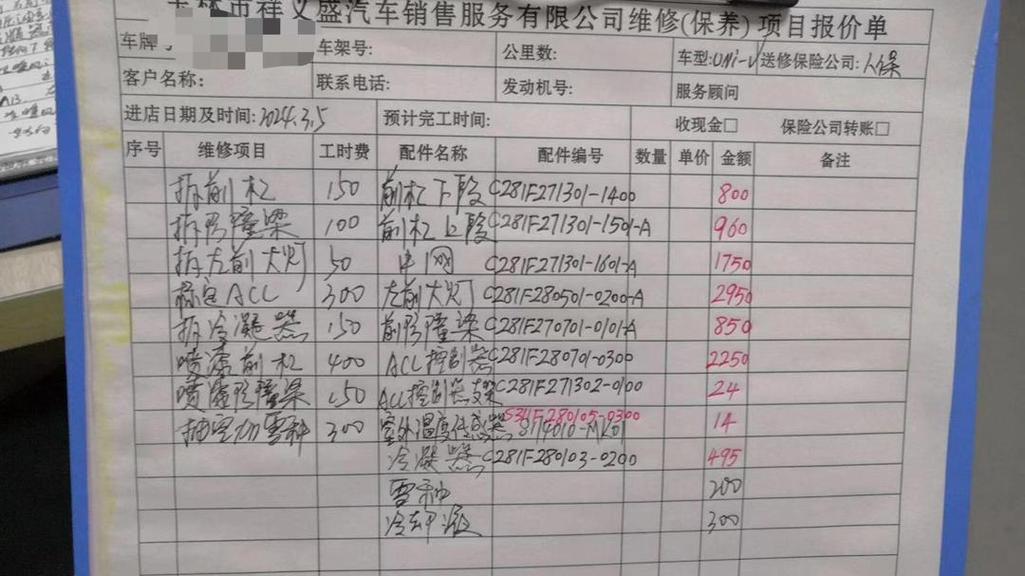 玉林市祥义盛汽车销售服务有限公司维修(保养)项目报价单
车牌 车架号: 公里数: 车型:UNi-V 送修保险公司:人保
客户名称: 联系电话: 发动机号: 服务顾问
进店日期及时间:2024.3.5 预计完工时间: 收现金□ 保险公司转账□
序号 维修项目 工时费 配件名称 配件编号 数量 单价 金额 备注
拆前杠 150 前杠下段 C281F271301-1400 800
拆防撞梁 100 前杠上段 C281F271301-1501-A 960
拆左前大灯 50 中网 C281F271301-1601-A 1750
标定ACC 300 左前大灯 C281F280501-0200-A 2950
拆冷凝器 150 前防撞梁 C281F270701-0101-A 850
喷漆前杠 400 ACC控制器 C281F280701-0300 2250
喷漆防撞梁 150 ACC控制器支架 C281F271302-0100 24
S311F280105-0300
抽空加雪种 300 室外温度传感器 14
冷凝器 C281F280103-0200 495
雪种 200
冷却液 300